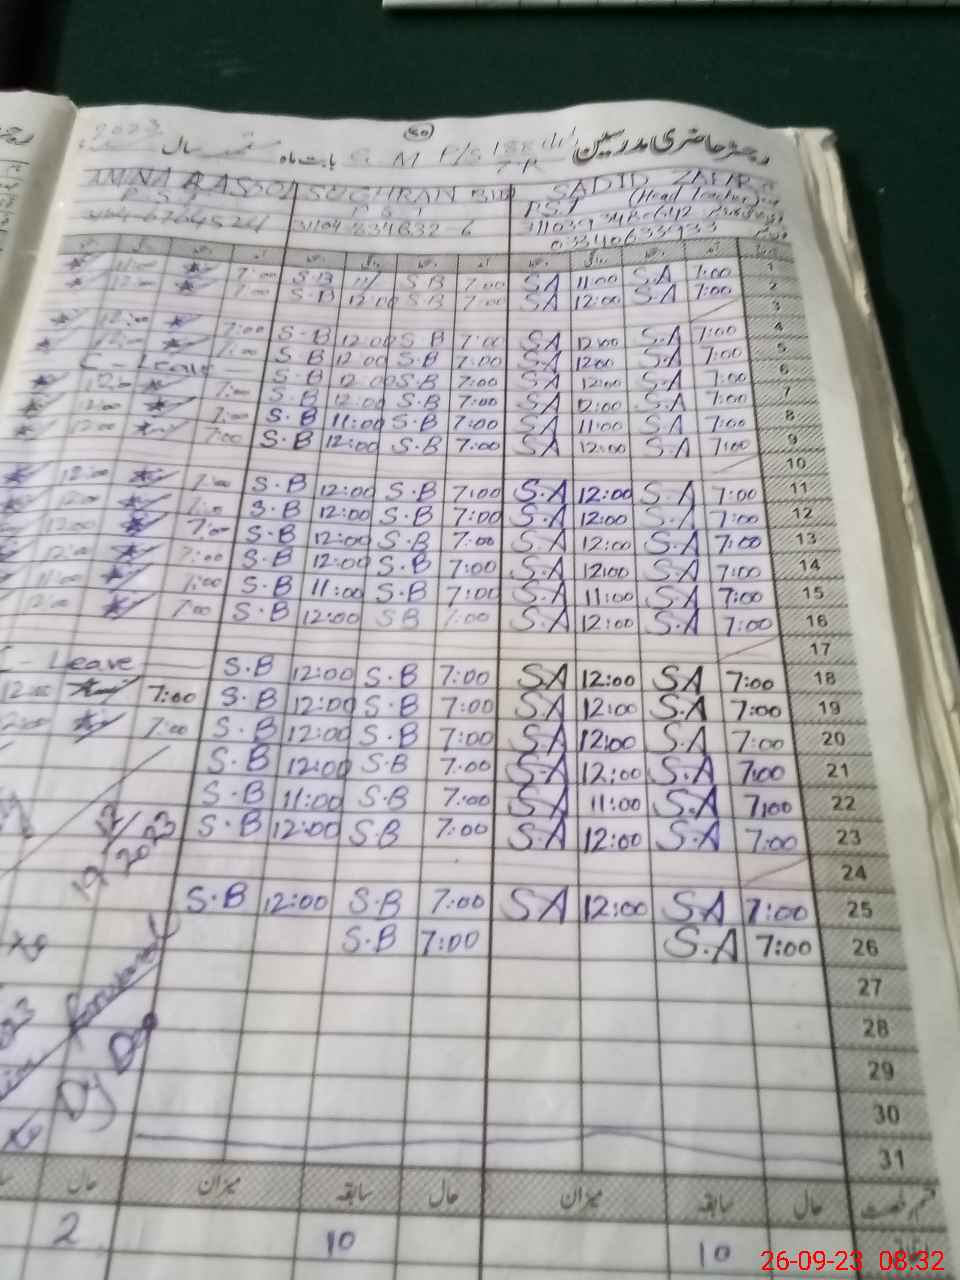 50
رجسٹر حاضری مدرسین G M P/S 188 بابت ماه ستمبر سال 2023
AMNA RASSOL SUGHRAN BIBI SADID ZAFAR
PST PST PST (Head Teacher)
31104-834832-6
03340633933
11:00 7:00 S·B 11/ S B 7:00 SA 11:00 S.A 7:00 1
12:00 7:00 S·B 12:00 S B 7:00 SA 12:00 S.A 7:00 2
3
12:00 7:00 S·B 12:00 S·B 7:00 SA 12:00 S.A 7:00 4
12:00 7:00 S B 12:00 S·B 7:00 SA 12:00 S.A 7:00 5
C - Leave S·B 12:00 S·B 7:00 SA 12:00 S.A 7:00 6
12:00 7:00 S·B 12:00 S·B 7:00 SA 12:00 S.A 7:00 7
12:00 7:00 S·B 11:00 S·B 7:00 SA 11:00 S.A 7:00 8
12:00 7:00 S·B 12:00 S·B 7:00 SA 12:00 S.A 7:00 9
10
12:00 7:00 S·B 12:00 S·B 7:00 S.A 12:00 S.A 7:00 11
12:00 7:00 S·B 12:00 S·B 7:00 S.A 12:00 S.A 7:00 12
12:00 7:00 S·B 12:00 S·B 7:00 S.A 12:00 S.A 7:00 13
12:00 7:00 S·B 12:00 S·B 7:00 S.A 12:00 S.A 7:00 14
11:00 7:00 S·B 11:00 S·B 7:00 S.A 11:00 S.A 7:00 15
12:00 7:00 S·B 12:00 S B 7:00 S.A 12:00 S.A 7:00 16
17
C - Leave S·B 12:00 S·B 7:00 SA 12:00 SA 7:00 18
12:00 7:00 S·B 12:00 S·B 7:00 SA 12:00 S.A 7:00 19
12:00 7:00 S·B 12:00 S·B 7:00 SA 12:00 S.A 7:00 20
S·B 12:00 S·B 7:00 S.A 12:00 S.A 7:00 21
S·B 11:00 S·B 7:00 SA 11:00 S.A 7:00 22
S·B 12:00 S·B 7:00 S.A 12:00 S.A 7:00 23
24
S·B 12:00 S·B 7:00 SA 12:00 SA 7:00 25
S·B 7:00 S.A 7:00 26
27
28
29
30
31
قسم رخصت حال سابقہ میزان حال سابقہ میزان حال
اتفاقیہ 10 10 2
Forwarded
Dy Deo
26-09-23 08:32